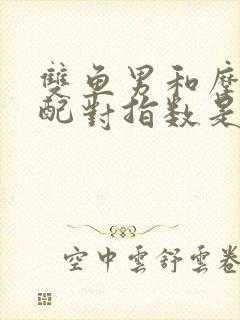 雙鱼男和摩
配對指数是
空中雲舒雲卷